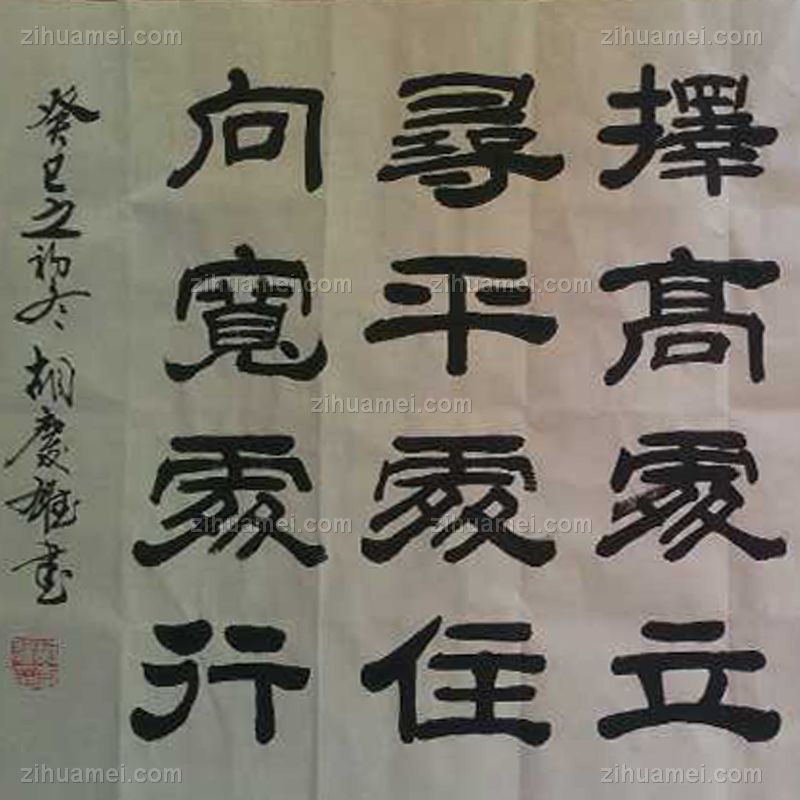 擇髙處立
尋平處住
向寬處行
癸巳之初冬 胡慶雄書
zihuamei.com zihuamei.com zihuamei.com
zihuamei.com zihuamei.com
zihuamei.com
zihuamei.com zihuamei.com
zihuamei.com zihuamei.com zihuamei.com